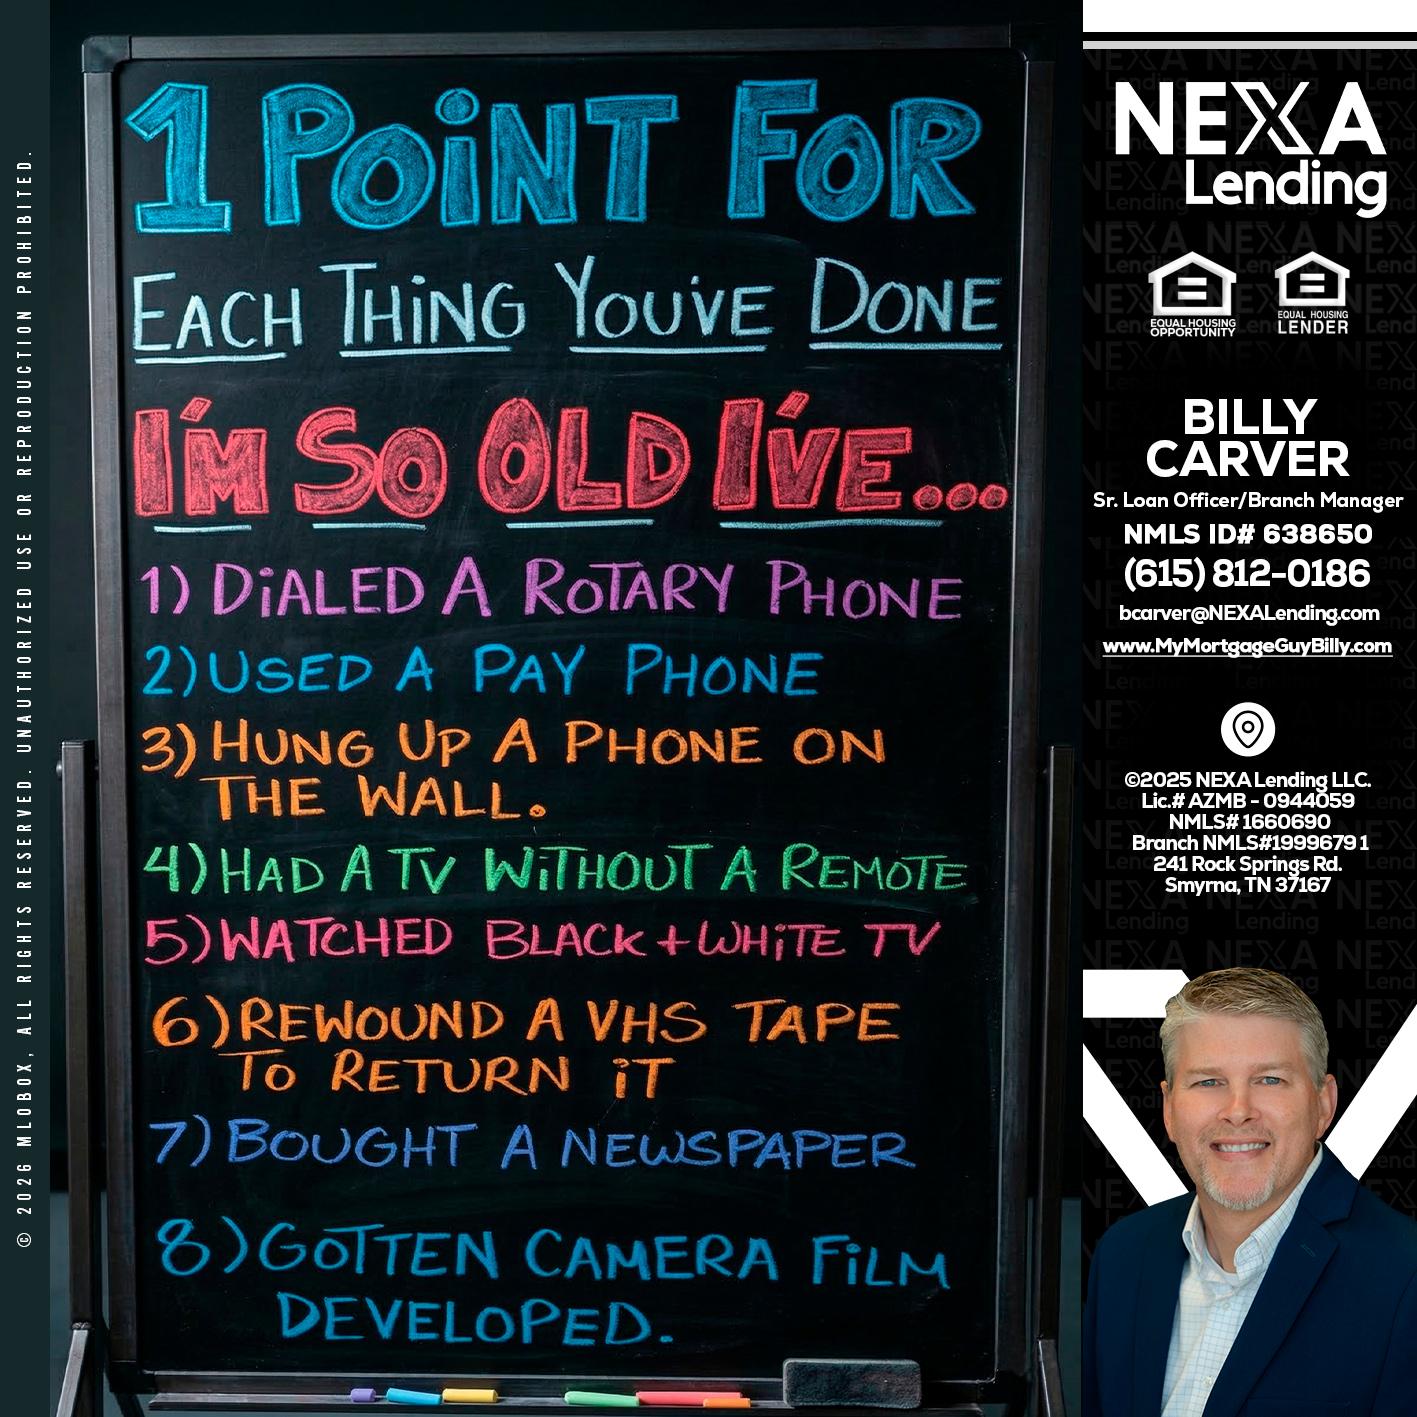 © 2026 MLOBOX, ALL RIGHTS RESERVED. UNAUTHORIZED USE OR REPRODUCTION PROHIBITED.
1 POINT FOR
EACH THING YOU'VE DONE
I'M SO OLD I'VE...
1) DIALED A ROTARY PHONE
2) USED A PAY PHONE
3) HUNG UP A PHONE ON
THE WALL.
4) HAD A TV WITHOUT A REMOTE
5) WATCHED BLACK + WHITE TV
6) REWOUND A VHS TAPE
TO RETURN IT
7) BOUGHT A NEWSPAPER
8) GOTTEN CAMERA FILM
DEVELOPED.
NEXA
Lending
EQUAL HOUSING
OPPORTUNITY
EQUAL HOUSING
LENDER
BILLY
CARVER
Sr. Loan Officer/Branch Manager
NMLS ID# 638650
(615) 812-0186
bcarver@NEXALending.com
www.MyMortgageGuyBilly.com
©2025 NEXA Lending LLC.
Lic.# AZMB - 0944059
NMLS# 1660690
Branch NMLS#1999679 1
241 Rock Springs Rd.
Smyrna, TN 37167